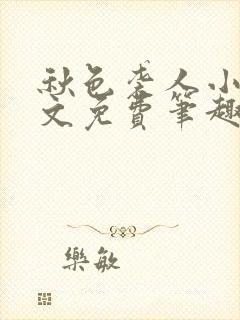 秋色袭人小
文免費筆趣
樂敏